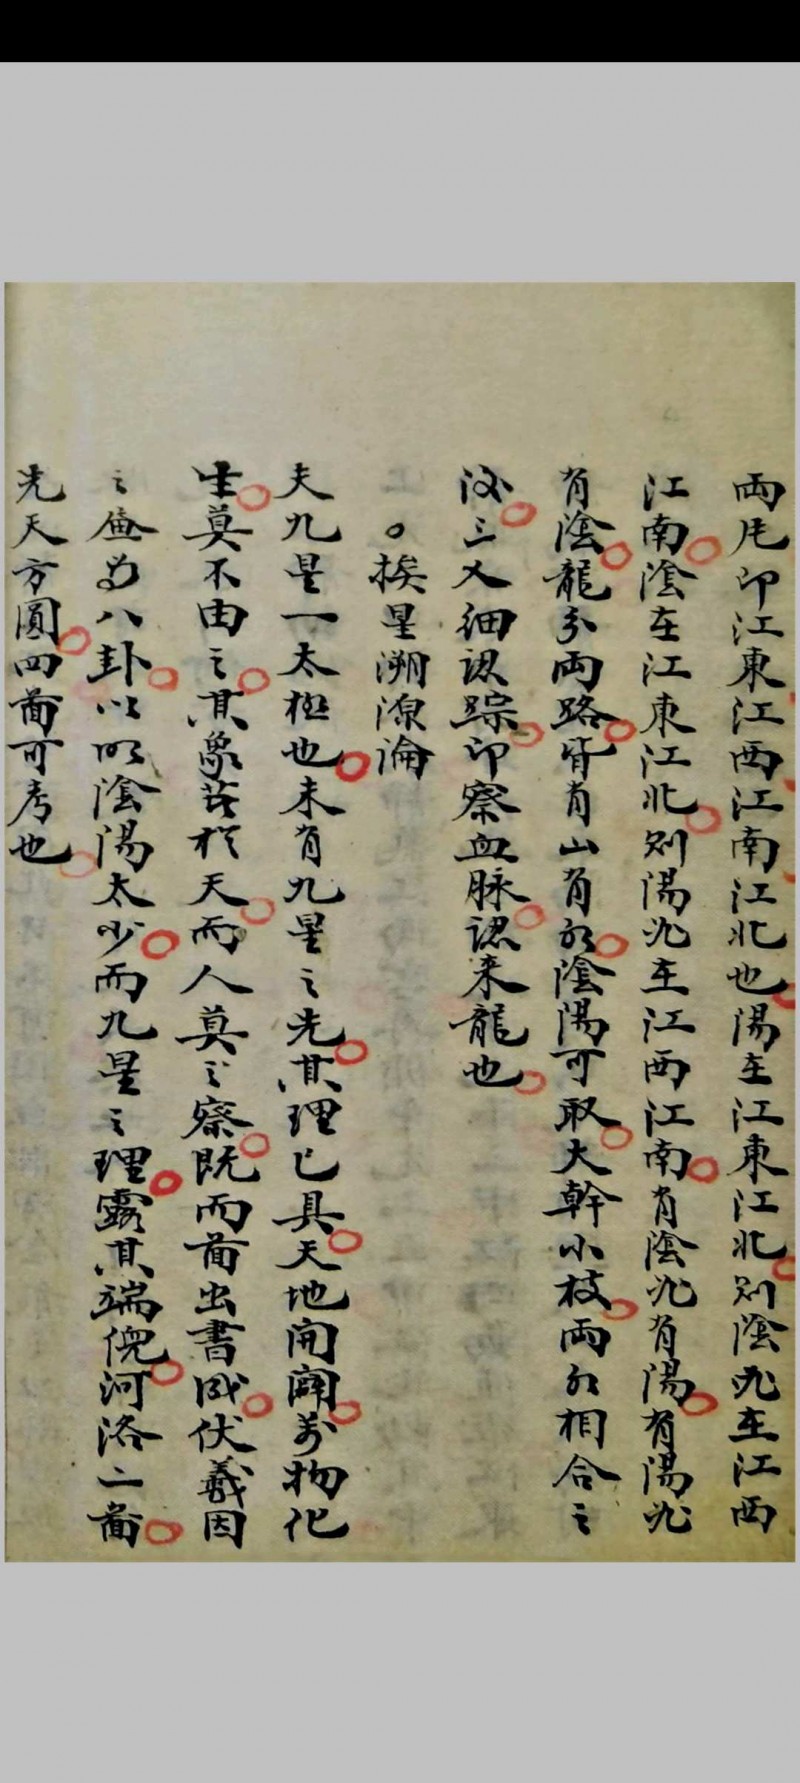 兩片即江東江西江南江北也陽在江東江北則陰必在江西
江南陰在江東江北則陽必在江西江南有陰必有陽有陽必
有陰龍分兩路皆有山有水陰陽可取大幹小枝兩水相合之
三叉細認踪即察血脉認来龍也
挨星溯源論
夫九星一太極也未有九星之先其理已具天地開闢萬物化
生莫不由之其象著於天而人莫之察既而啚出書成伏羲因
之畫為八卦以明陰陽太少而九星之理露其端倪河洛二啚
先天方圓四啚可考也